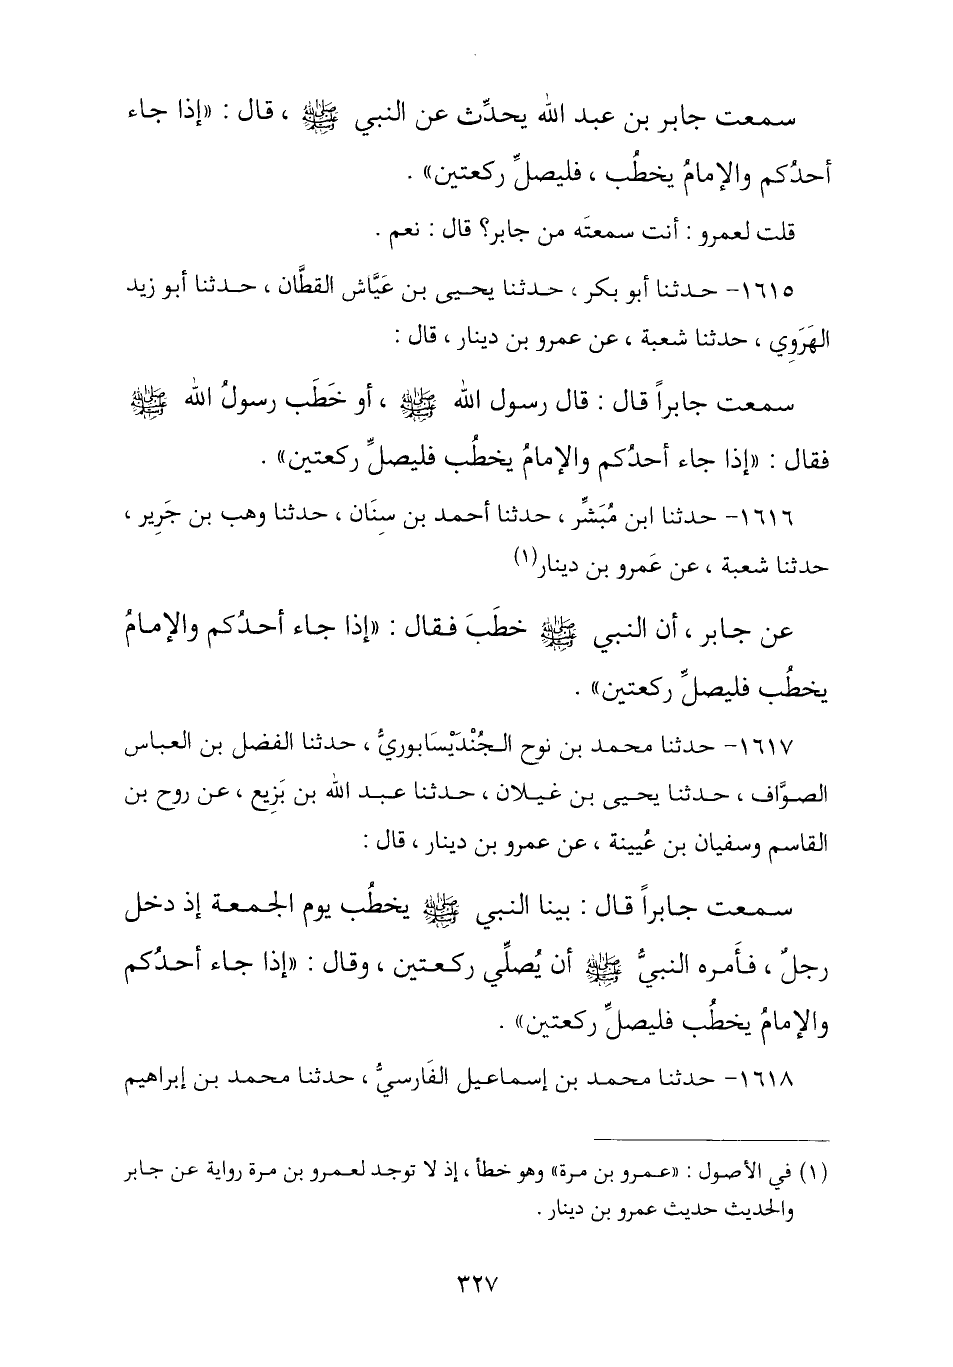 سمعت جابر بن عبد الله يحدِّث عن النبي ﷺ ، قال : «إذا جاء
أحدُكم والإمامُ يخطُب ، فليصلِّ ركعتين» .
قلت لعمرو : أنت سمعتَه من جابر؟ قال : نعم .
١٦١٥- حدثنا أبو بكر ، حدثنا يحيى بن عَيَّاش القطَّان ، حدثنا أبو زيد
الهَرَوِي ، حدثنا شعبة ، عن عمرو بن دينار ، قال :
سمعت جابراً قال : قال رسول الله ﷺ ، أو خَطَب رسولُ الله ﷺ
فقال : «إذا جاء أحدُكم والإمامُ يخطُب فليصلِّ ركعتين» .
١٦١٦- حدثنا ابن مُبَشِّر ، حدثنا أحمد بن سِنَان ، حدثنا وهب بن جَرِير ،
حدثنا شعبة ، عن عَمرو بن دينار(١)
عن جابر ، أن النبي ﷺ خطَبَ فقال : «إذا جاء أحدُكم والإمامُ
يخطُب فليصلِّ ركعتين» .
١٦١٧- حدثنا محمد بن نوح الجُنْدَيْسَابوريُّ ، حدثنا الفضل بن العباس
الصوَّاف ، حدثنا يحيى بن غيلان ، حدثنا عبد الله بن بَزِيع ، عن روح بن
القاسم وسفيان بن عُيينة ، عن عمرو بن دينار ، قال :
سمعت جابراً قال : بينا النبي ﷺ يخطُب يوم الجمعة إذ دخل
رجلٌ ، فأَمره النبيُّ ﷺ أن يُصلِّي ركعتين ، وقال : «إذا جاء أحدُكم
والإمامُ يخطُب فليصلِّ ركعتين» .
١٦١٨- حدثنا محمد بن إسماعيل الفَارسيُّ ، حدثنا محمد بن إبراهيم
(١) في الأصول : «عمرو بن مرة» وهو خطأ ، إذ لا توجد لعمرو بن مرة رواية عن جابر
والحديث حديث عمرو بن دينار .
٣٢٧